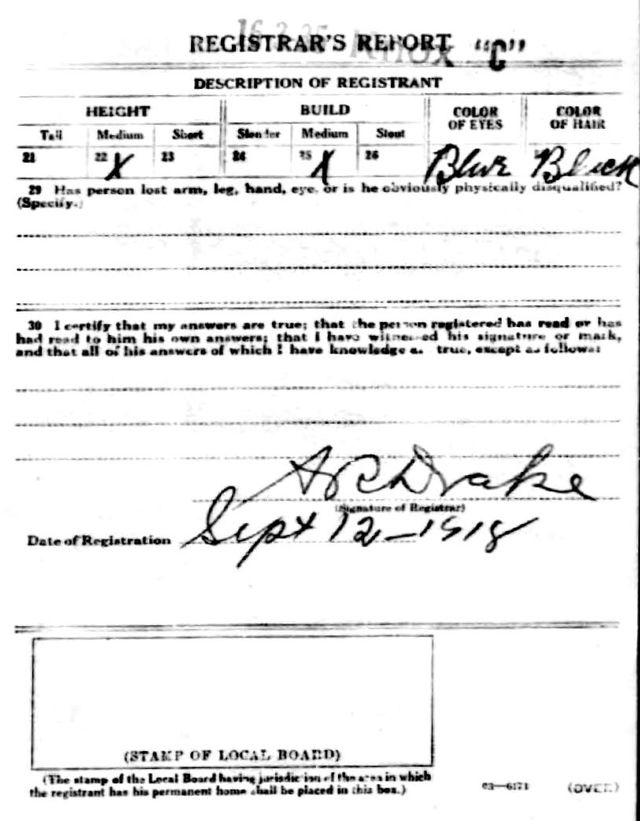 REGISTRAR'S REPORT "C"
DESCRIPTION OF REGISTRANT
HEIGHT BUILD COLOR OF EYES COLOR OF HAIR
Tall Medium Short Slender Medium Stout
21 22 X 23 24 25 X 26 Blue Black
29 Has person lost arm, leg, hand, eye, or is he obviously physically disqualified?
(Specify.)
30 I certify that my answers are true; that the person registered has read or has
had read to him his own answers; that I have witnessed his signature or mark,
and that all of his answers of which I have knowledge are true, except as follows:
Drake
(Signature of Registrar)
Date of Registration Sept 12-1918
(STAMP OF LOCAL BOARD)
(The stamp of the Local Board having jurisdiction of the area in which
the registrant has his permanent home shall be placed in this box.)
03—6171 (OVER)